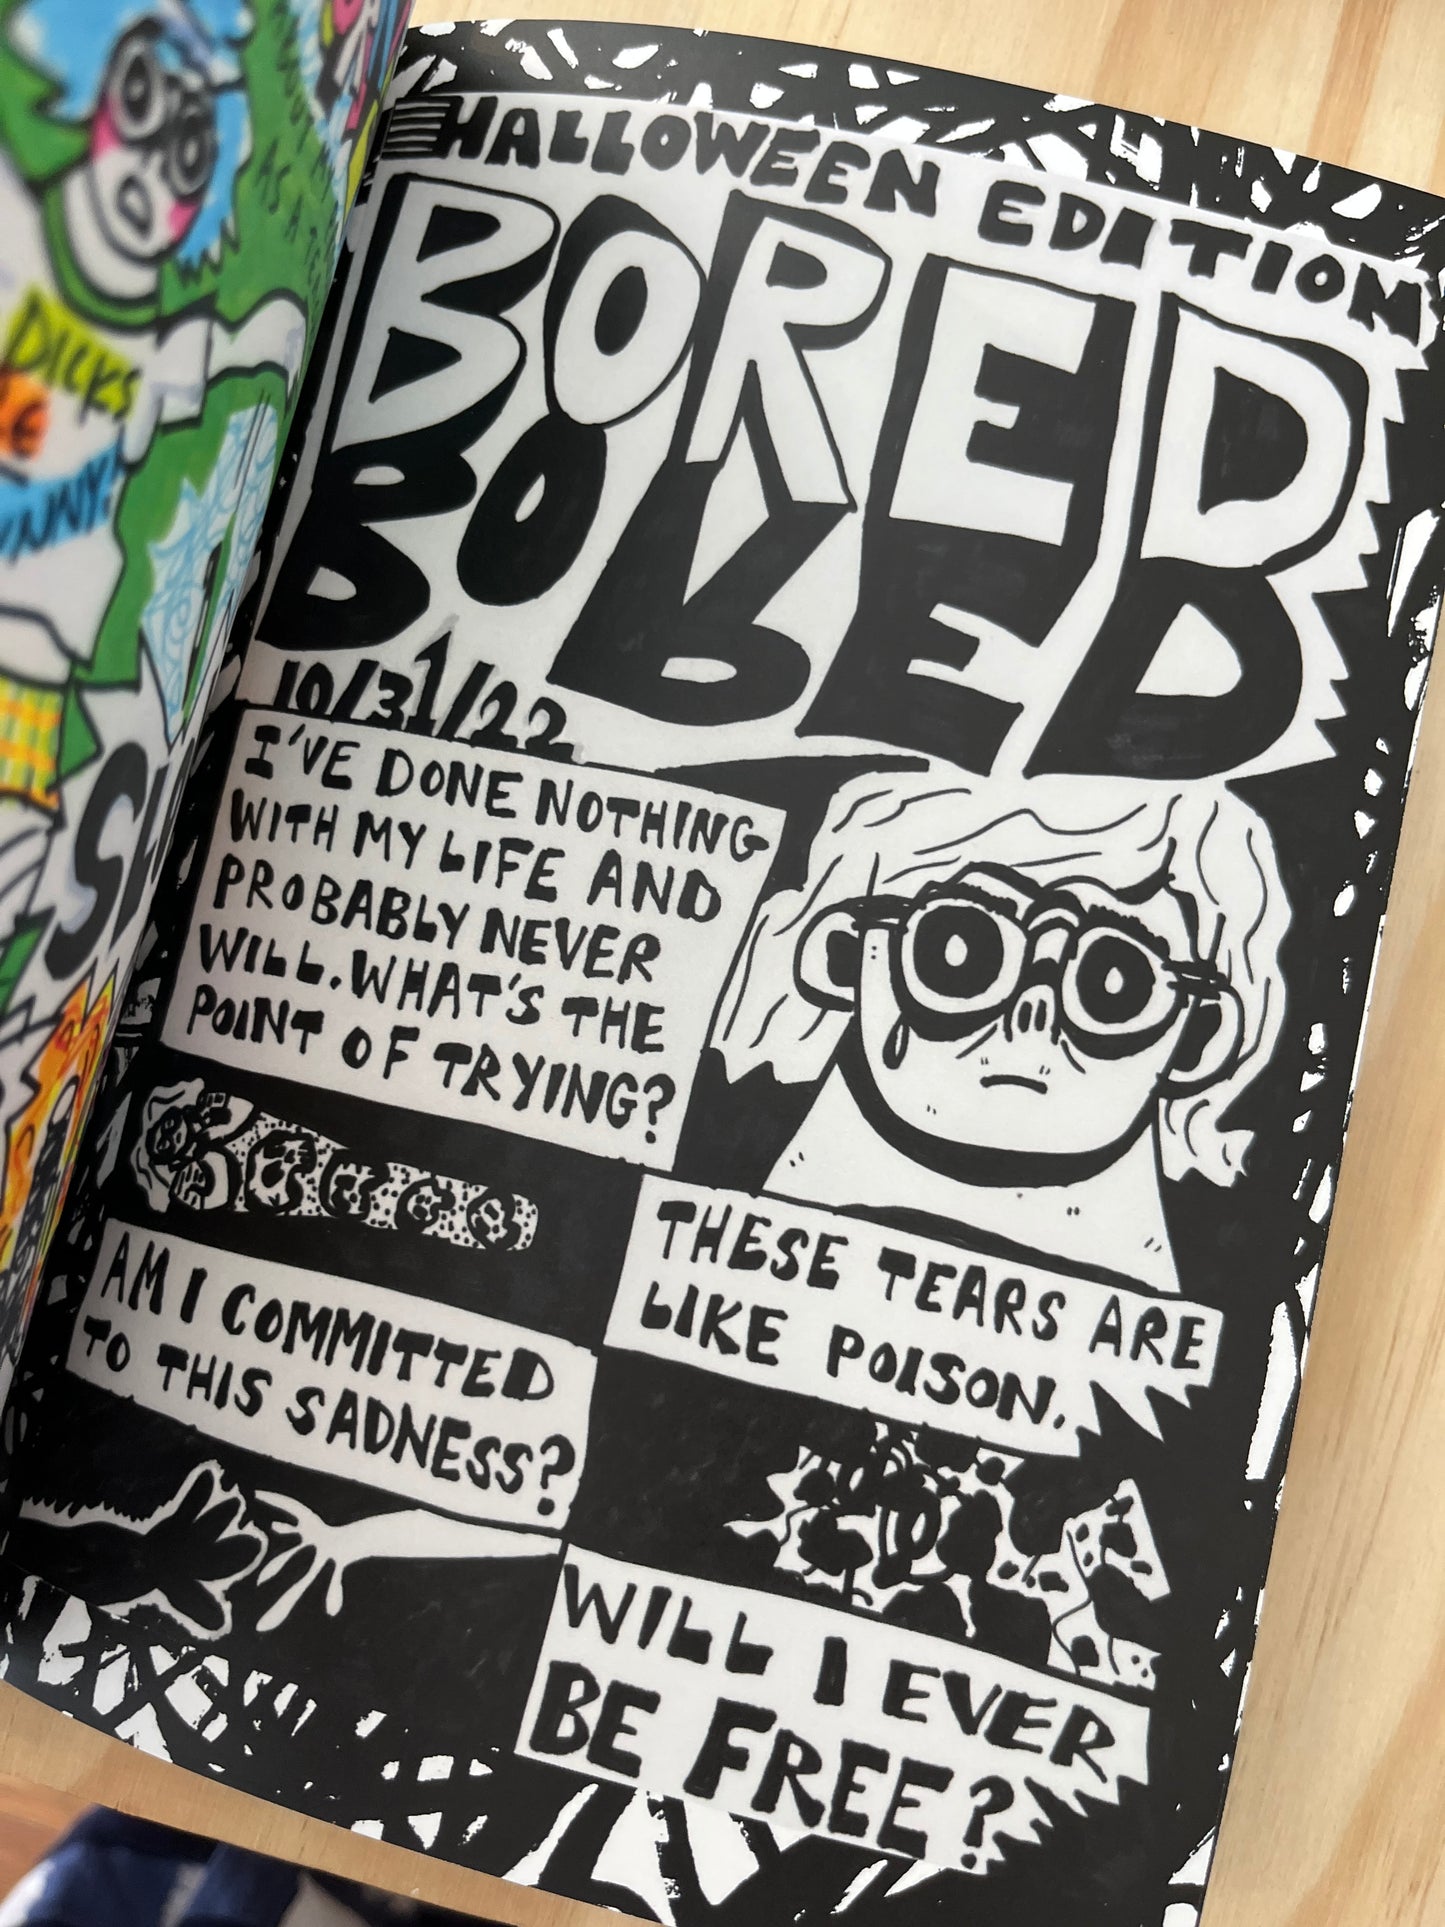 HALLOWEEN EDITION
BORED
BORED
10/31/22
I'VE DONE NOTHING
WITH MY LIFE AND
PROBABLY NEVER
WILL. WHAT'S THE
POINT OF TRYING?
THESE TEARS ARE
LIKE POISON.
AM I COMMITTED
TO THIS SADNESS?
WILL I EVER
BE FREE?
AS A
DICKS